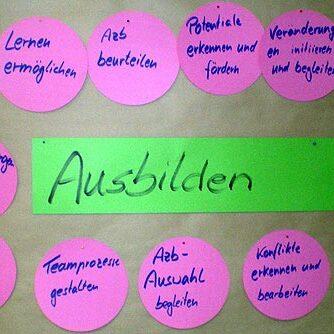 Lernen
ermöglichen
Azb
beurteilen
Potentiale
erkennen und
fördern
Veränderung
en initiieren
und begleite
Ausbilden
Teamprozesse
gestalten
Azb-
Auswahl
begleiten
Konflikte
erkennen und
bearbeiten